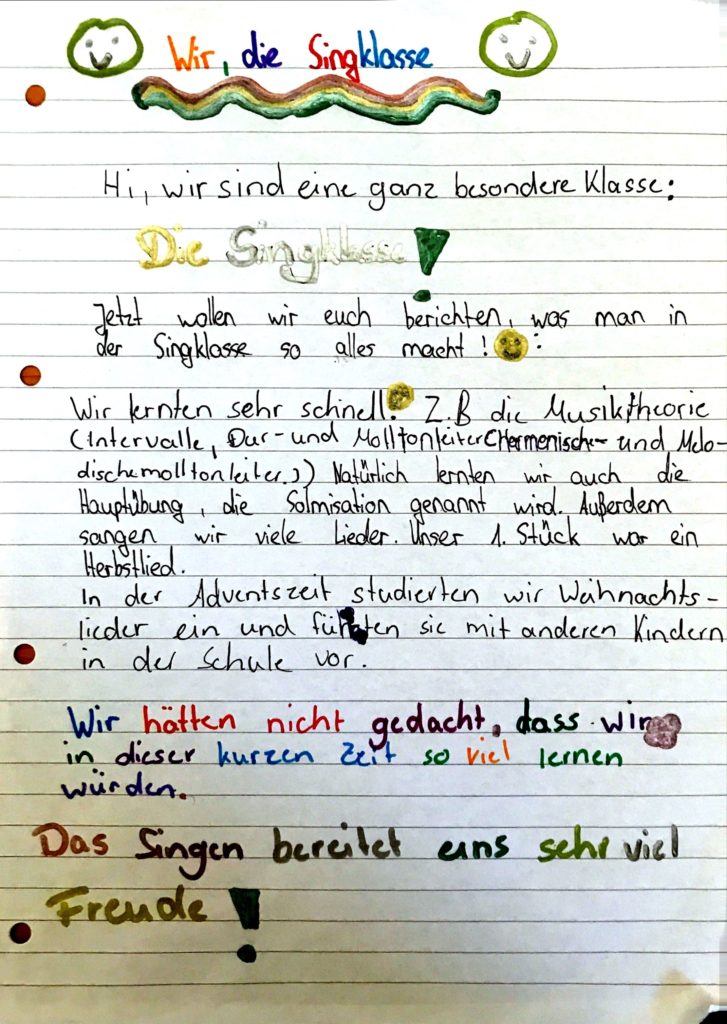 Wir, die Singklasse
Hi, wir sind eine ganz besondere Klasse:
Die Singklasse!
Jetzt wollen wir euch berichten, was man in
der Singklasse so alles macht! :
Wir lernten sehr schnell. Z.B die Musiktheorie
(Intervalle, Dur- und Molltonleiter(Hermenisch- und Melo-
dischemolltonleiter.)) Natürlich lernten wir auch die
Hauptübung, die Solmisation genannt wird. Außerdem
sangen wir viele Lieder. Unser 1. Stück war ein
Herbstlied.
In der Adventszeit studierten wir Weihnachts-
lieder ein und führten sie mit anderen Kindern
in der Schule vor.
Wir hätten nicht gedacht, dass wir
in dieser kurzen Zeit so viel lernen
würden.
Das Singen bereitet uns sehr viel
Freude!